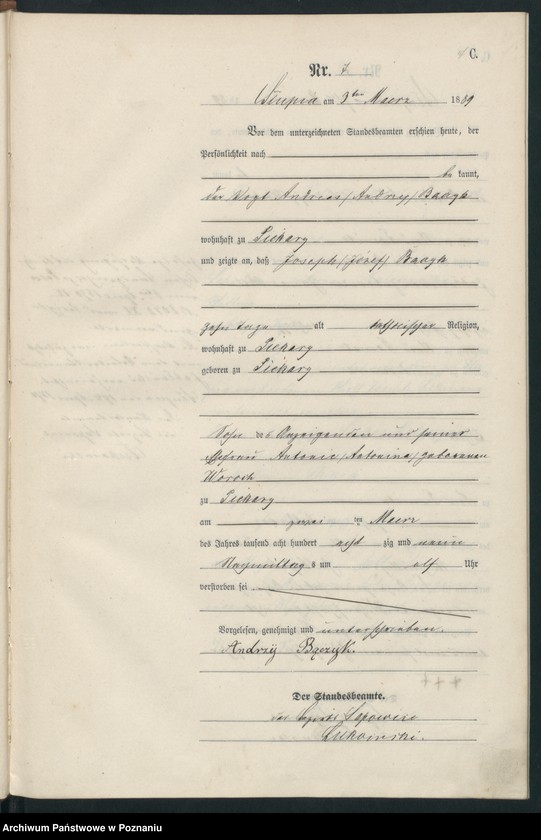 C.
Nr. 7
Słupia am 3ten Maerz 1889
Vor dem unterzeichneten Standesbeamten erschien heute, der
Persönlichkeit nach
be kannt,
der Vogt Andreas /Andrzy/ Baazyk
wohnhaft zu Piekary
und zeigte an, daß Joseph /Józef/ Baazyk
zehn Tage alt katholischer Religion,
wohnhaft zu Piekary
geboren zu Piekary
Sohn des Anzeigenden und seiner
Ehefrau Antonie /Antonina/ geborenen
zu Piekary
am zwei ten Maerz
des Jahres tausend acht hundert acht zig und neun
Nachmittag s um elf Uhr
verstorben sei
Vorgelesen, genehmigt und unterschrieben.
Andrzij Bączyk.
+++
Der Standesbeamte.
Archiwum Państwowe w Poznaniu